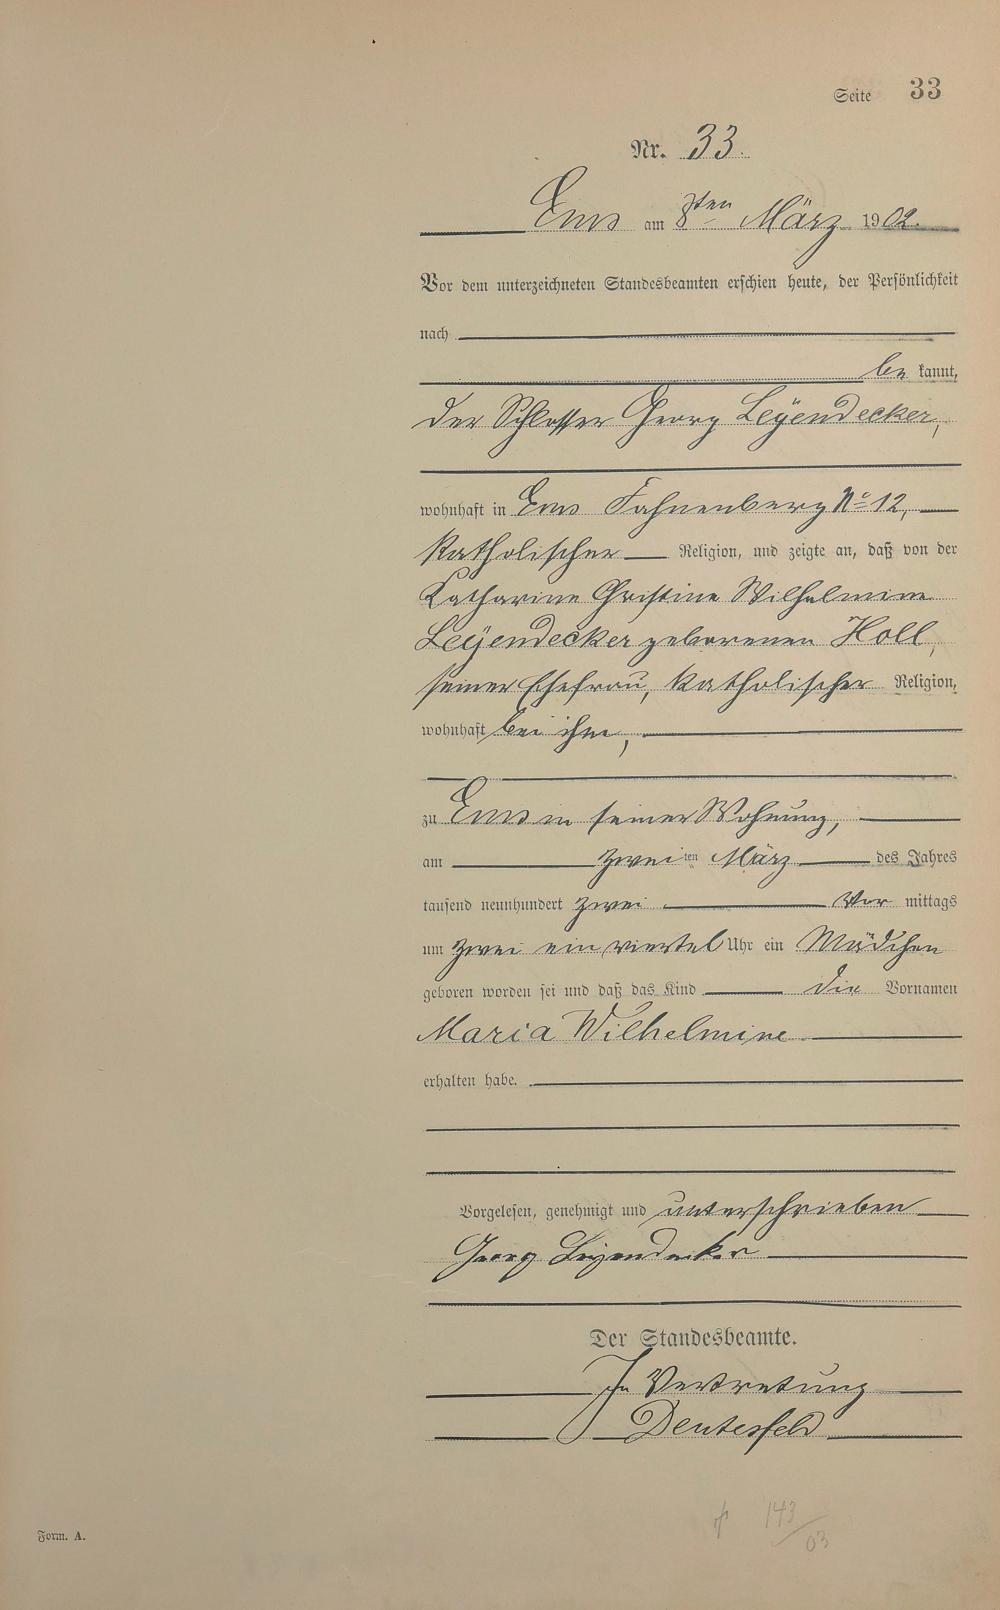 Seite 33
Nr. 33.
Ems am 8ten März 1902.
Vor dem unterzeichneten Standesbeamten erschien heute, der Persönlichkeit
nach
be kannt,
der Schlosser Georg Leÿendecker,
wohnhaft in Ems Fahnenberg No 12,
katholischer Religion, und zeigte an, daß von der
Katharine Christine Wilhelmine
Leÿendecker geborenen Holl,
seiner Ehefrau, katholischer Religion,
wohnhaft bei ihm,
zu Ems in seiner Wohnung,
am zweiten März des Jahres
tausend neunhundert zwei Vor mittags
um zwei ein viertel Uhr ein Mädchen
geboren worden sei und daß das Kind die Vornamen
Maria Wilhelmine
erhalten habe.
Vorgelesen, genehmigt und unterschrieben
Georg Leyendecker
Der Standesbeamte.
In Vertretung
Deutesfeld
143/03
Form. A.